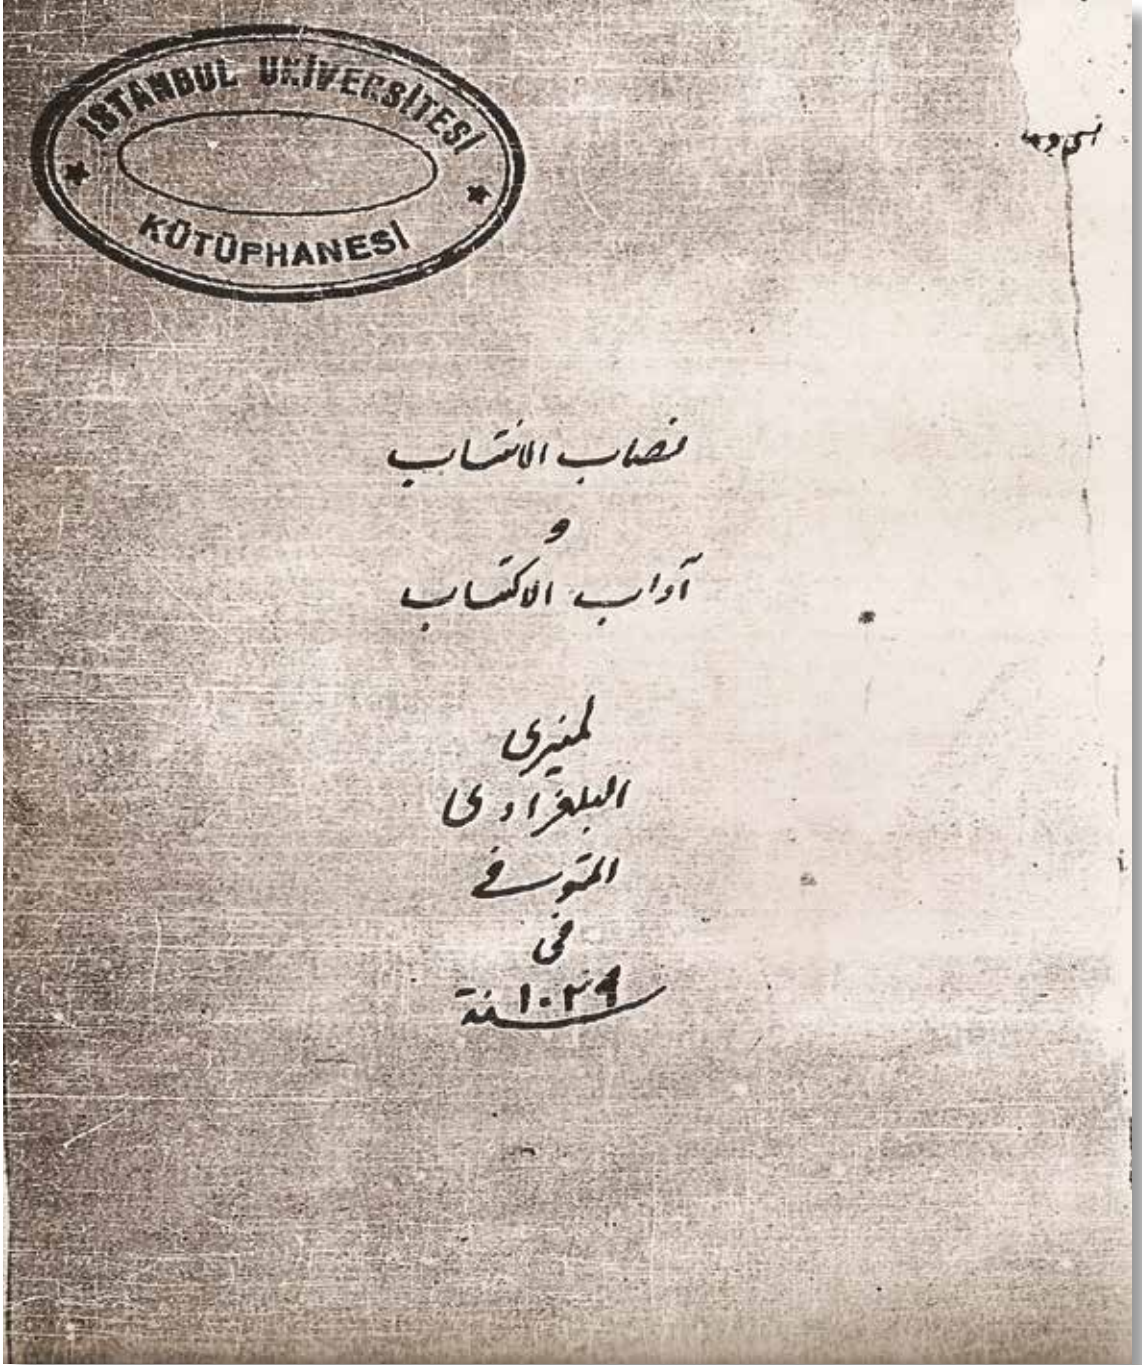 İSTANBUL ÜNİVERSİTESİ
KÜTÜPHANESİ
نصاب الانتساب
و
آداب الاكتساب
لمنيرى
البلغرادى
المتوفى
فى
سنة ١٠٢٩